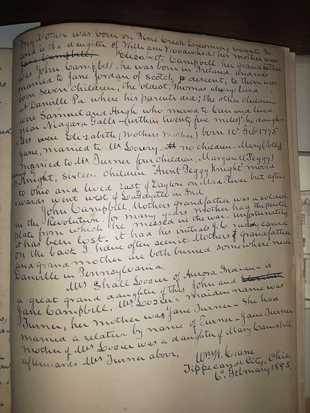 My Mother was born on Pine Creek Lycoming County Pa
and is the daughter of William
Elizabeth Campbell, her grandfather
was John Campbell, he was born in Ireland and was
married to Jane Jordan of Scotch descent, to them were
born seven children, the oldest, Thomas always lived
at Danville Pa where his parents did; the other children
were Samuel and Hugh who moved to Canada
near Niagara Falls - further twenty five miles, the daugh-
ters were Elizabeth, (Mothers mother) born 10th Feb 1775
Jane, married to Mr Lowry, no children - Mary (Polly)
married to Mr Turner four children, Margaret (Peggy)
Knight, sixteen children. Aunt Peggy Knight moved
to Ohio and lived East of Dayton on Mad River but after
wards went west of Lafayette in Ind.
John Campbell Mothers grandfather was a soldier
in the Revolution for many years mother had the pewter
plate from which he messed in the war. unfortunately
it has been lost. it had his initials J. C.
on the back I have often seen it Mothers grandfather
and grandmother are both buried somewhere near
Danville in Pennsylvania.
Mrs Shall Looser of Aurora Indiana is
a great grand daughter of this John and
Jane Campbell. Mrs Looser's maiden name was
Turner, her mother was Jane Turner - She had
married a relative by name of Turner - Jane Turner
mother of Mrs Looser was a daughter of Mary Campbell
afterwards Mrs Turner above,
Wm. N. Crane
Tippecanoe City, Ohio,
6th February 1895.